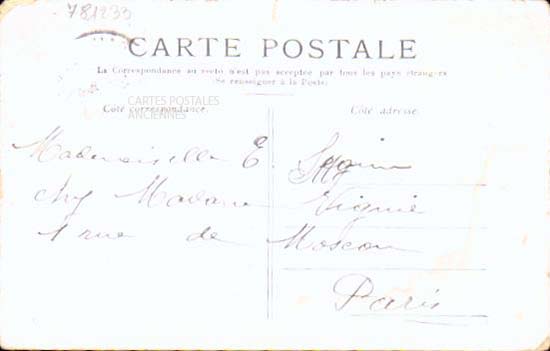 781233
CARTE POSTALE
La Correspondance au recto n'est pas acceptée par tous les pays étrangers
Se renseigner à la Poste.
CARTES POSTALES
ANCIENNES
Côté correspondance.
Côté adresse.
Mademoiselle E.
chez Madame Vignie
1 rue de Moscou
Paris